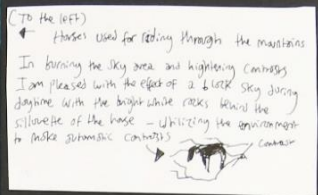 (TO the left)
Horses used for riding through the mountains
In burning the sky area and hightening contrasts
I am pleased with the effect of a black sky during
daytime with the bright white rocks behind the
sillouette of the horse - utilizing the environment
to make automatic contrasts
Contrast